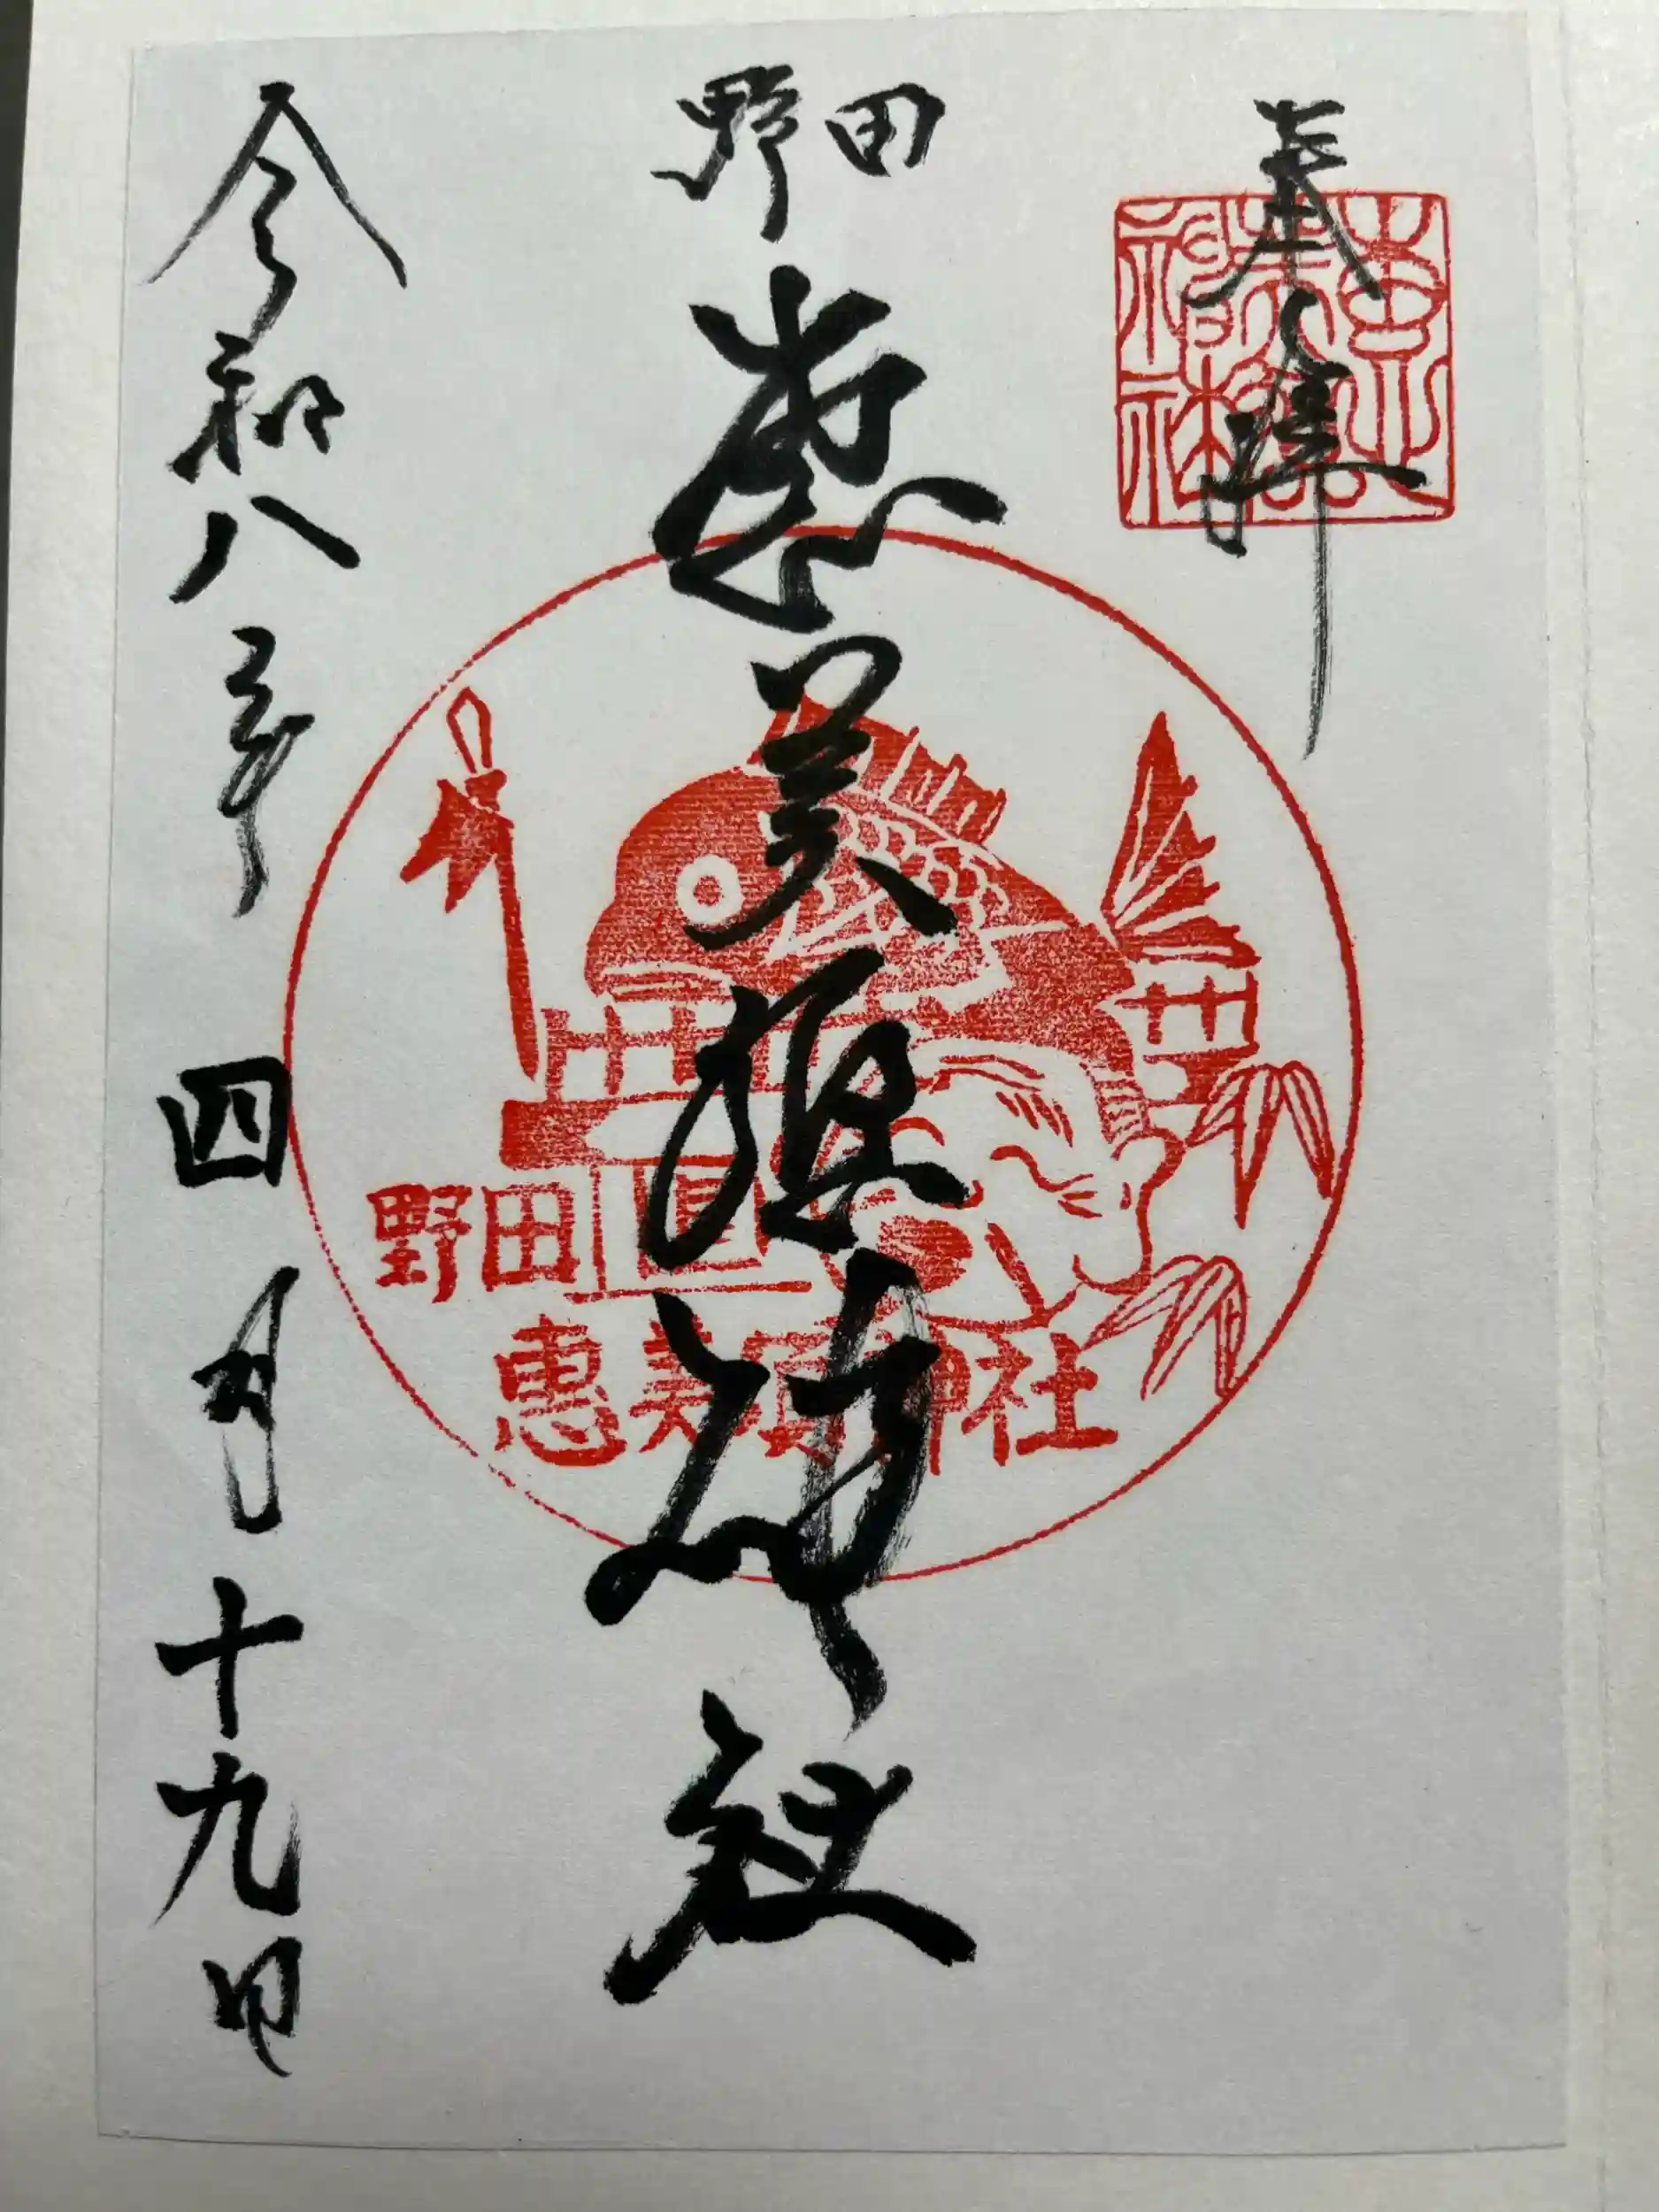 奉拝
野田
恵美須神社
令和八年四月十九日
野田
恵美須神社